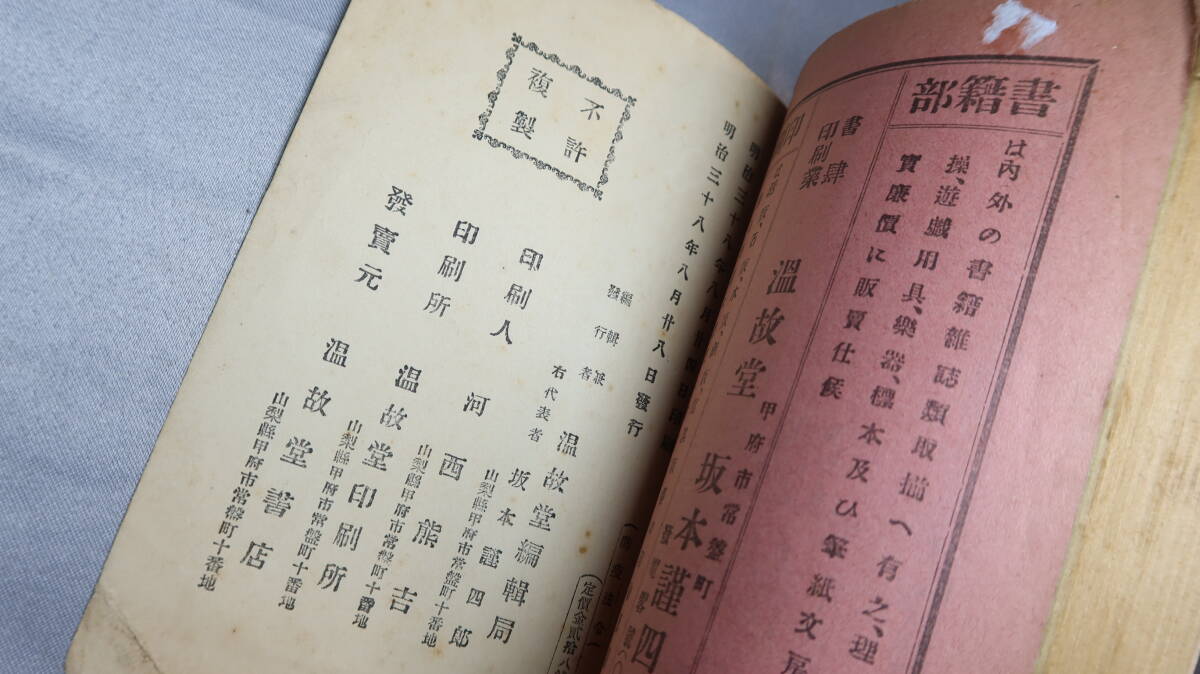 書籍部
は內外の書籍雜誌類取揃へ有之、理
操、遊戲用具、樂器、標本及ひ筆紙文房
實廉價に販賣仕候
書肆
印刷業
溫故堂
甲府市常盤町
坂本謹四
明治三十八年八月廿八日發行
不許
複製
編輯兼
發行者
溫故堂編輯局
右代表者
坂本謹四郎
山梨縣甲府市常盤町十番地
印刷人
河西熊吉
山梨縣甲府市常盤町十番地
印刷所
溫故堂印刷所
山梨縣甲府市常盤町十番地
發賣元
溫故堂書店
山梨縣甲府市常盤町十番地
定價金貳拾八